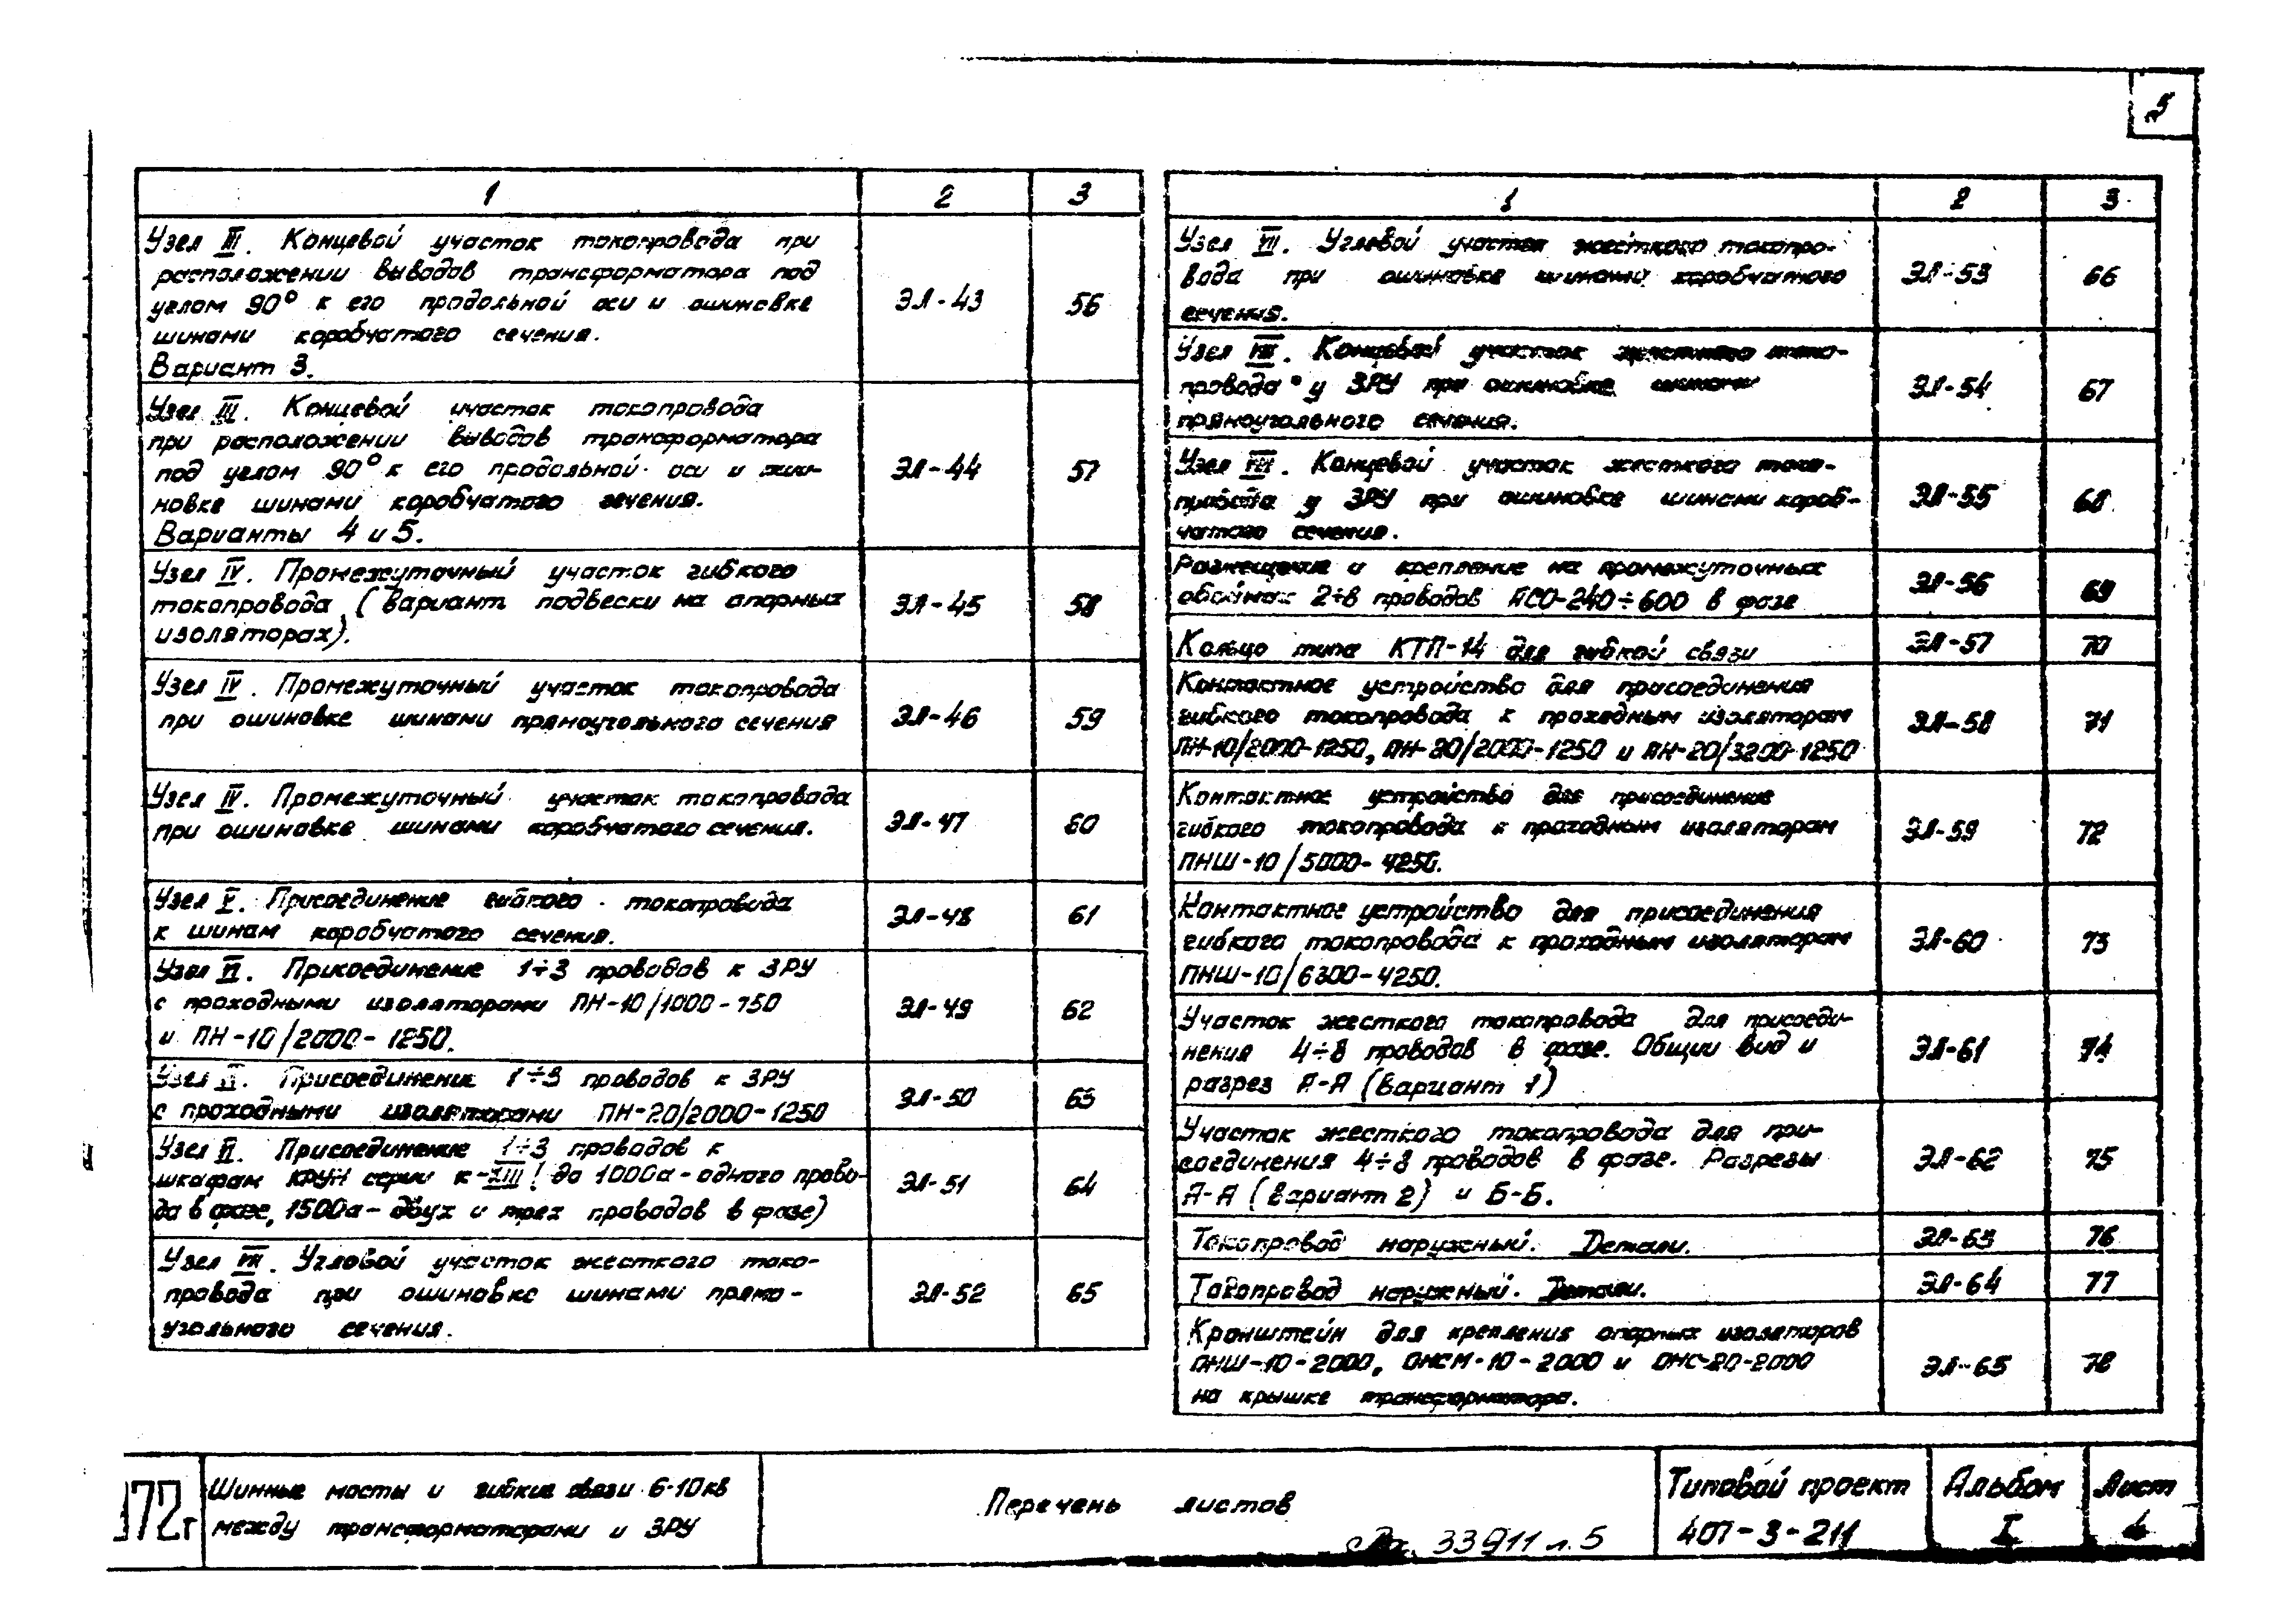 5
1 2 3
Узел III. Концевой участок токопровода при
расположении выводов трансформатора под
углом 90° к его продольной оси и ошиновке
шинами коробчатого сечения.
Вариант 3.
ЭЛ-43 56
Узел III. Концевой участок токопровода
при расположении выводов трансформатора
под углом 90° к его продольной оси и оши-
новке шинами коробчатого сечения.
Варианты 4 и 5.
ЭЛ-44 57
Узел IV. Промежуточный участок гибкого
токопровода (вариант подвески на опорных
изоляторах).
ЭЛ-45 58
Узел IV. Промежуточный участок токопровода
при ошиновке шинами прямоугольного сечения
ЭЛ-46 59
Узел IV. Промежуточный участок токопровода
при ошиновке шинами коробчатого сечения.
ЭЛ-47 60
Узел V. Присоединение гибкого токопровода
к шинам коробчатого сечения.
ЭЛ-48 61
Узел VI. Присоединение 1÷3 проводов к ЗРУ
с проходными изоляторами ПН-10/1000-750
и ПН-10/2000-1250.
ЭЛ-49 62
Узел VI. Присоединение 1÷3 проводов к ЗРУ
с проходными изоляторами ПН-20/2000-1250
ЭЛ-50 63
Узел VI. Присоединение 1÷3 проводов к
шкафам КРУН серии К-XIII (до 1000а-одного прово-
да в фазе, 1500а-двух и трех проводов в фазе)
ЭЛ-51 64
Узел VII. Угловой участок жесткого токо-
провода при ошиновке шинами прямо-
угольного сечения.
ЭЛ-52 65
1 2 3
Узел VII. Угловой участок жесткого токопро-
вода при ошиновке шинами коробчатого
сечения.
ЭЛ-53 66
Узел VIII. Концевой участок жесткого токо-
провода у ЗРУ при ошиновке шинами
прямоугольного сечения.
ЭЛ-54 67
Узел VIII. Концевой участок жесткого токо-
провода у ЗРУ при ошиновке шинами короб-
чатого сечения.
ЭЛ-55 68
Размещение и крепление на промежуточных
обоймах 2÷8 проводов АСО-240÷600 в фазе
ЭЛ-56 69
Кольцо типа КТП-14 для гибкой связи
ЭЛ-57 70
Контактное устройство для присоединения
гибкого токопровода к проходным изоляторам
ПН-10/2000-1250, ПН-20/2000-1250 и ПН-20/3200-1250
ЭЛ-58 71
Контактное устройство для присоединения
гибкого токопровода к проходным изоляторам
ПНШ-10/5000-4250.
ЭЛ-59 72
Контактное устройство для присоединения
гибкого токопровода к проходным изоляторам
ПНШ-10/6300-4250.
ЭЛ-60 73
Участок жесткого токопровода для присоеди-
нения 4÷8 проводов в фазе. Общий вид и
разрез А-А (вариант 1)
ЭЛ-61 74
Участок жесткого токопровода для при-
соединения 4÷8 проводов в фазе. Разрезы
А-А (вариант 2) и Б-Б.
ЭЛ-62 75
Токопровод наружный. Детали.
ЭЛ-63 76
Токопровод наружный. Детали.
ЭЛ-64 77
Кронштейн для крепления опорных изоляторов
ОНШ-10-2000, ОНСМ-10-2000 и ОНС-20-2000
на крышке трансформатора.
ЭЛ-65 78
1972г
Шинные мосты и гибкие связи 6-10кв
между трансформаторами и ЗРУ
Перечень листов
33911 л. 5
Типовой проект
407-3-211
Альбом
I
Лист
4